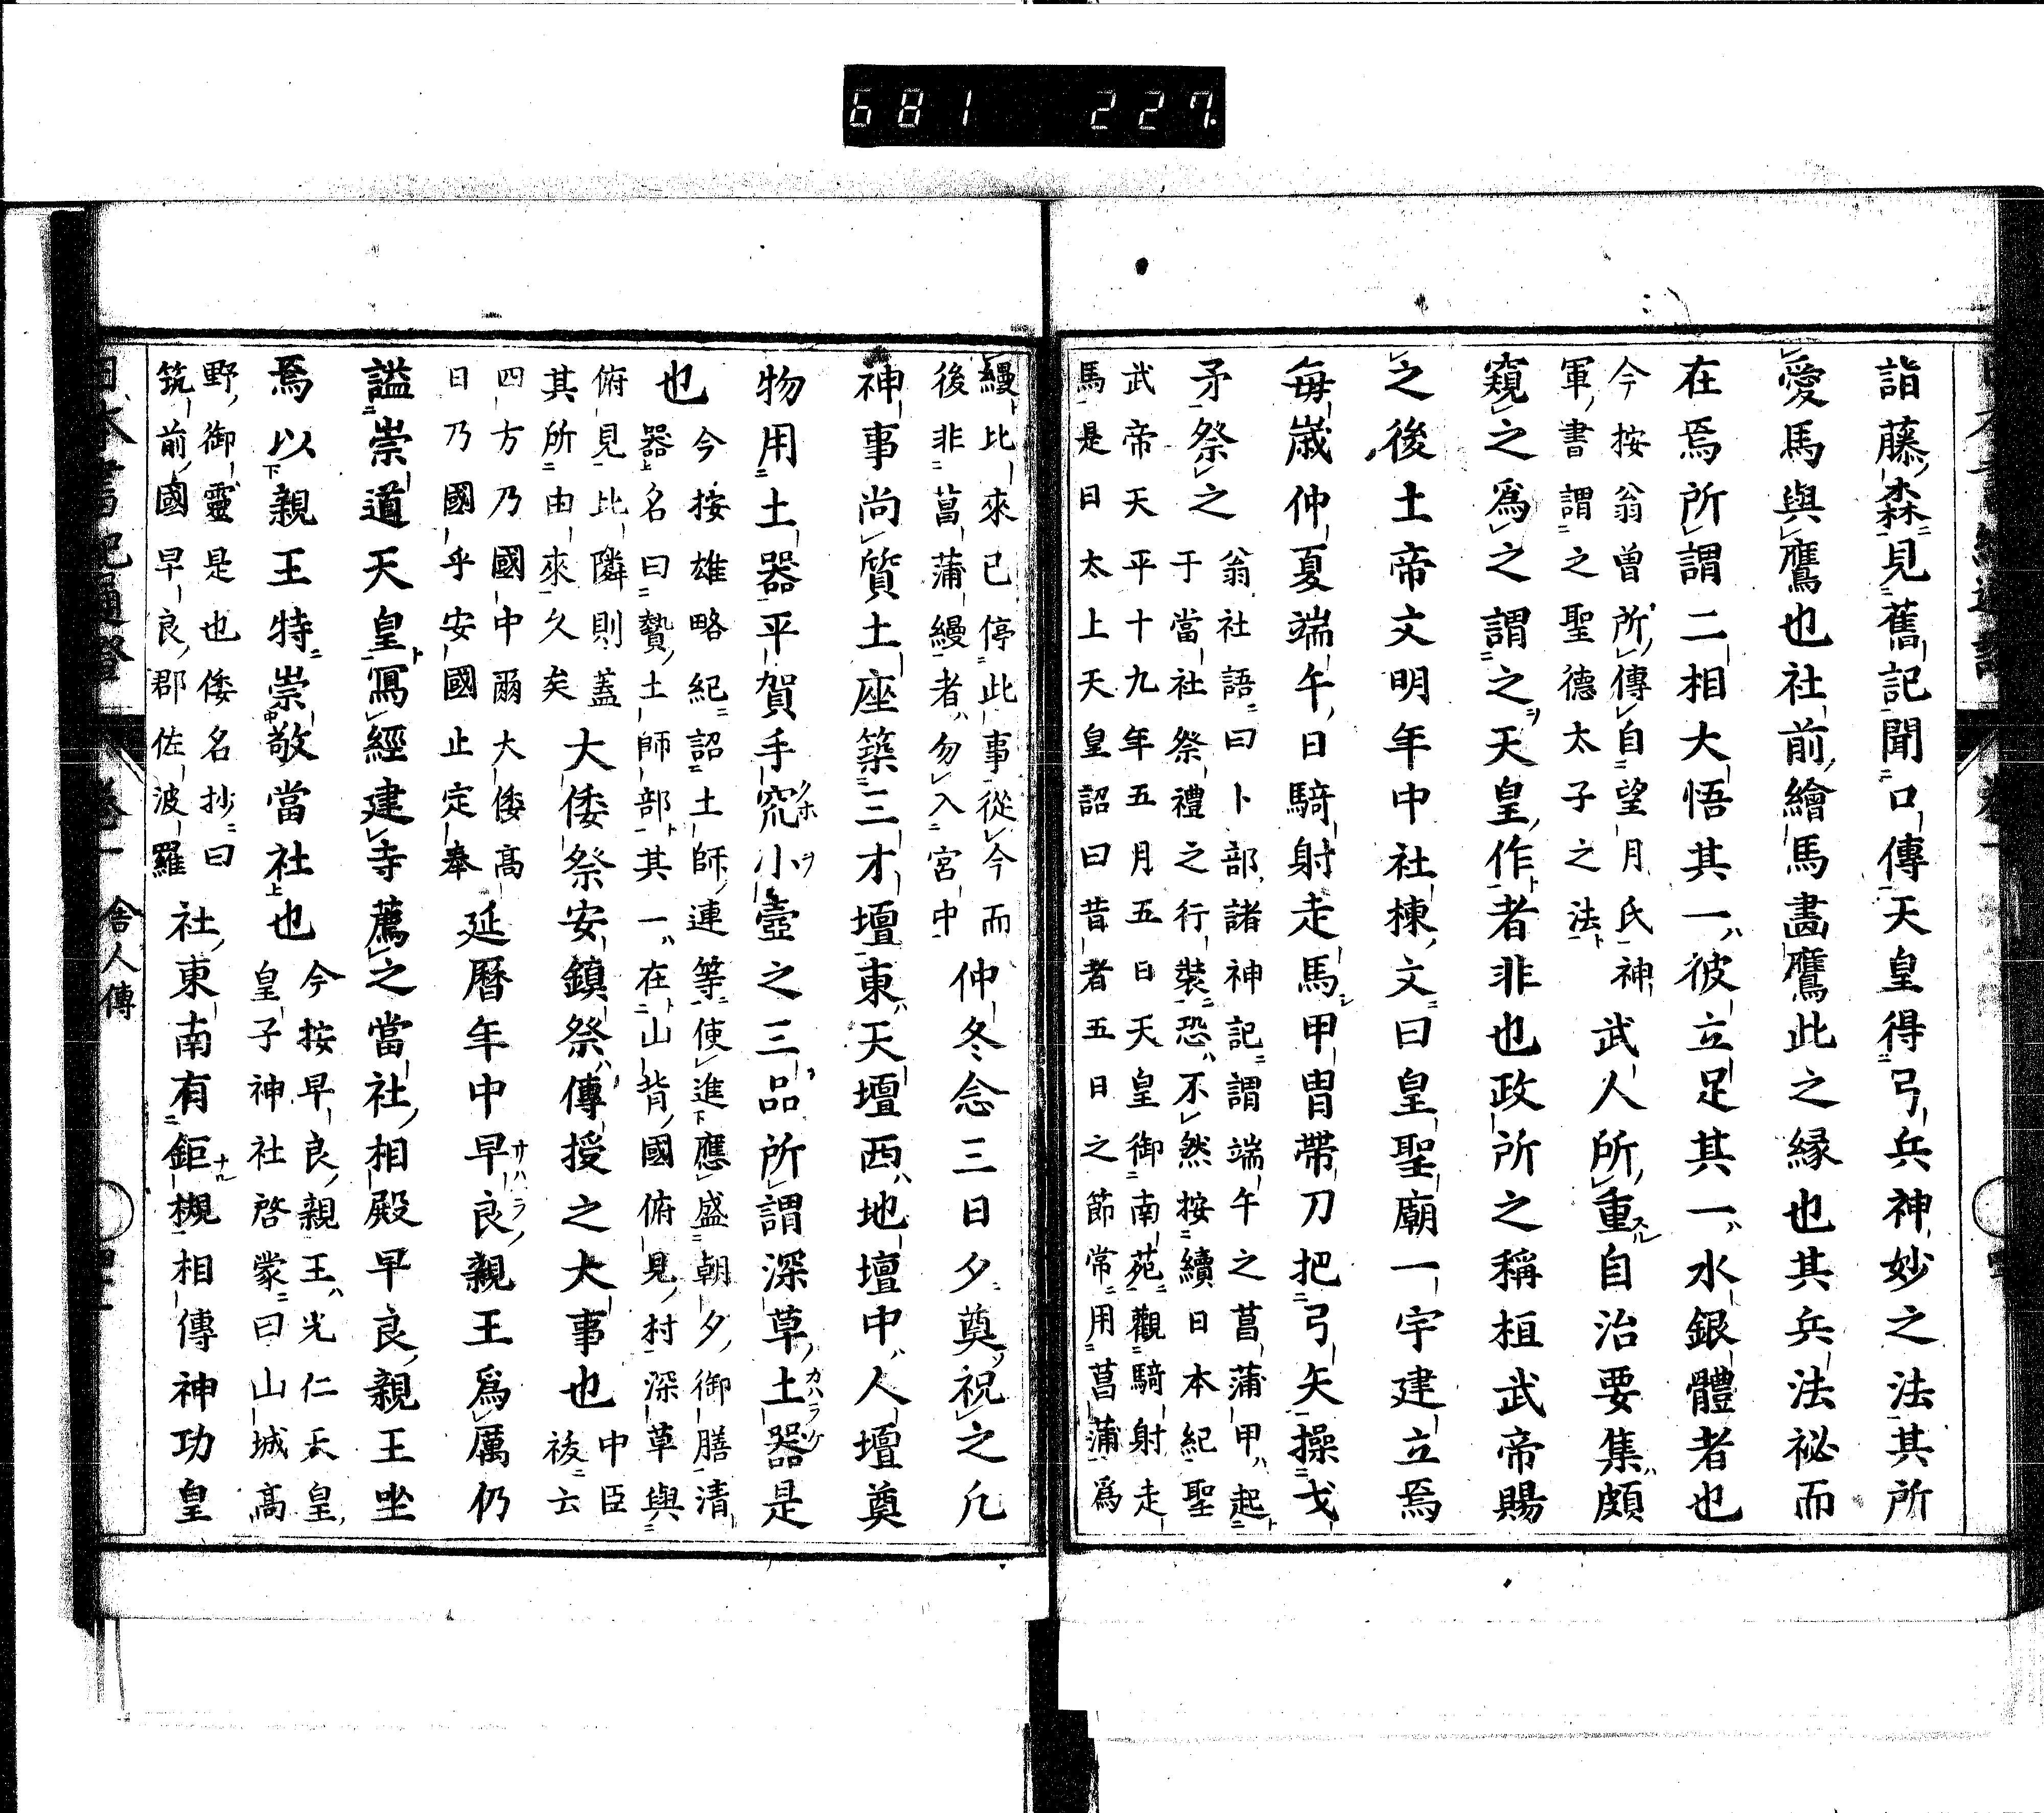 681 227
詣藤森見舊記聞口傳天皇得弓兵神妙之法其所
愛馬與鷹也社前繪馬畵鷹此之縁也其兵法祕而
在焉所謂二相大悟其一彼立足其一水銀體者也
今按翁曾所傳自望月氏神
軍書謂之聖德太子之法
武人所重自治要集頗
窺之爲之謂之天皇作者非也政所之稱桓武帝賜
之後土帝文明年中社棟文曰皇聖廟一宇建立焉
毎歳仲夏端午日騎射走馬甲冑帶刀把弓矢操戈
矛祭之
翁社語曰卜部諸神記謂端午之菖蒲甲起
于當社祭禮之行裝恐不然按續日本紀聖
武帝天平十九年五月五日天皇御南苑觀騎射走
馬是日太上天皇詔曰昔者五日之節常用菖蒲爲
縵比來已停此事從今而
後非菖蒲縵者勿入宮中
仲冬念三日夕奠祝之凢
神事尚質土座築三才壇東天壇西地壇中人壇奠
物用土器平賀手窊小壼之三品所謂深草土器是
也
今按雄略紀詔土師連等使進應盛朝夕御膳清
器名曰贄土師部其一在山背國俯見村深草與
俯見比隣則蓋
其所由來久矣
大倭祭安鎮祭傳授之大事也
中臣
祓云
四方乃國中爾大倭高
日乃國乎安國止定奉
延曆年中早良親王爲厲仍
謚崇道天皇寫經建寺薦之當社相殿早良親王坐
焉以親王特崇敬當社也
今按早良親王光仁天皇
皇子神社啓蒙曰山城高
野御靈是也倭名抄曰
筑前國早良郡佐波羅
社東南有鉅槻相傳神功皇
卷一
舍人傳